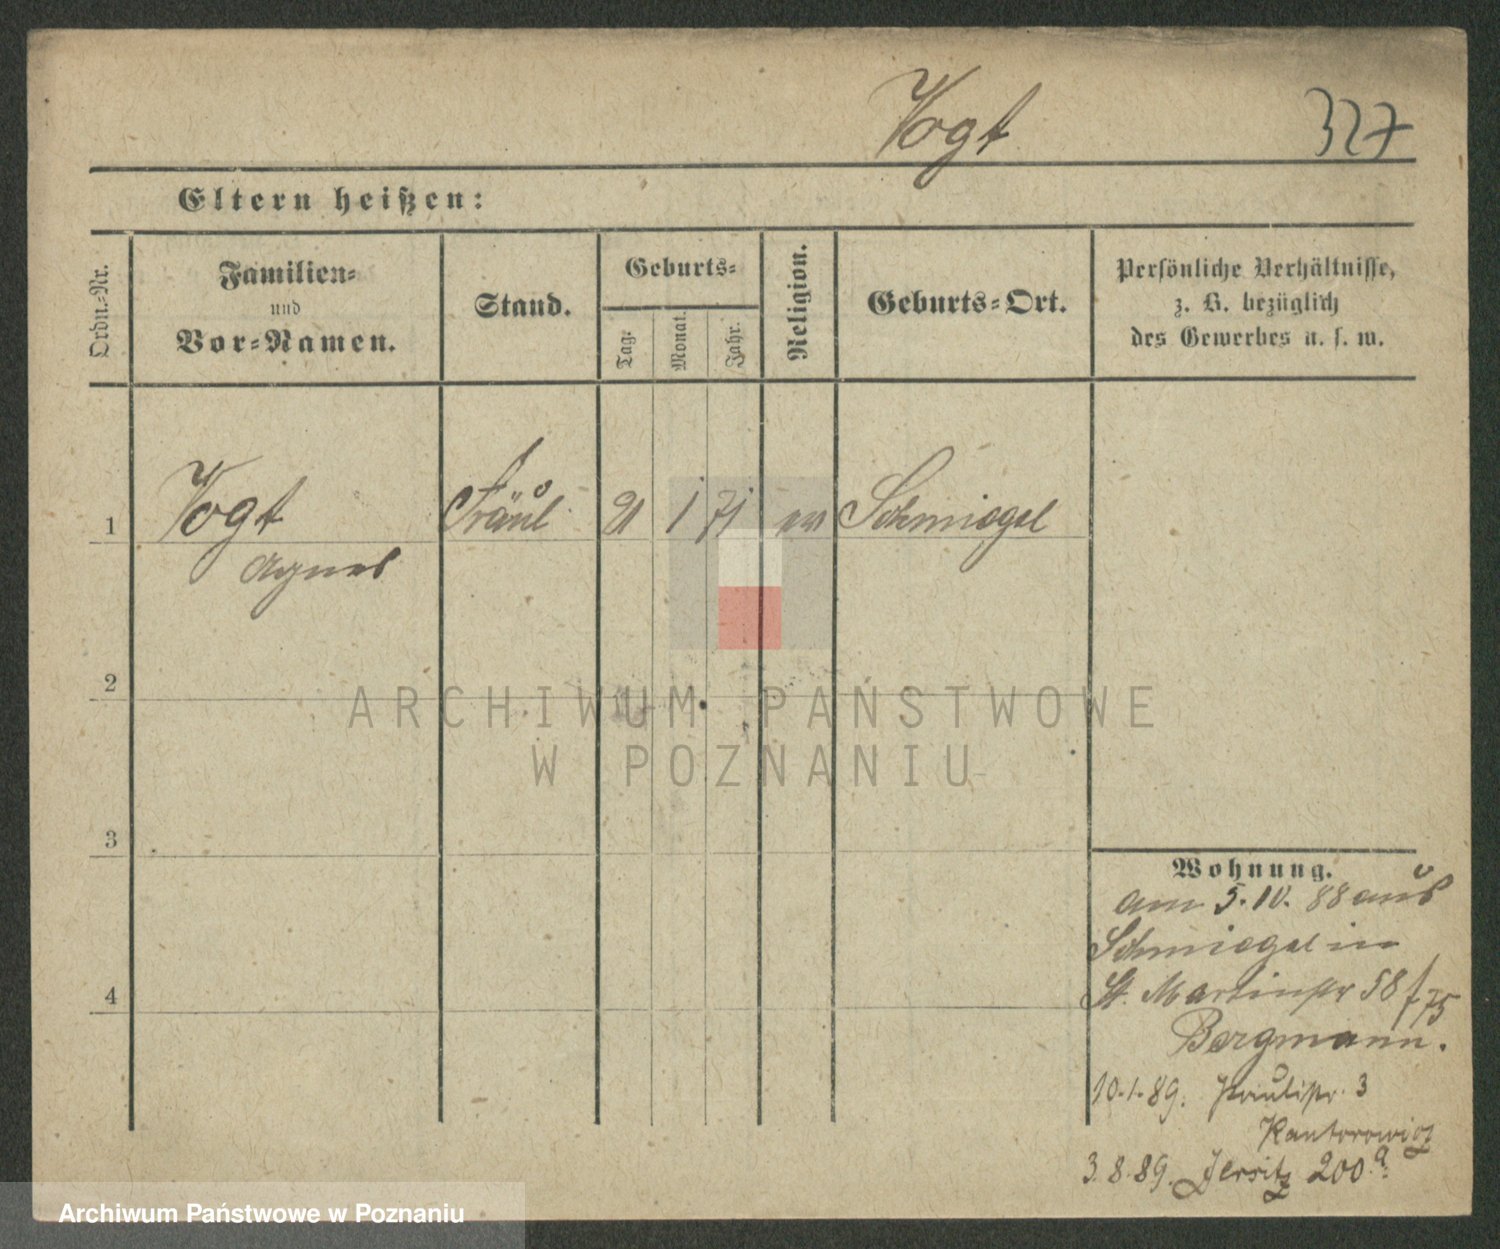 Vogt
327
Eltern heißen:
Ordn.-Nr.
Familien-
und
Vor-Namen.
Stand.
Geburts-
Tag.
Monat.
Jahr.
Religion.
Geburts-Ort.
Persönliche Verhältnisse,
z. B. bezüglich
des Gewerbes u. s. w.
1
Vogt
Agnes
Fräul
21
1
71
ev
Schmiegel
2
3
4
Wohnung.
am 5. IV. 88 aus
Schmiegel in
St. Martinstr 58
Bergmann.
10.1.89. Paulistr. 3
Kantorowicz
3.8.89. Jersitz 200a
ARCHIWUM PAŃSTWOWE
W POZNANIU
Archiwum Państwowe w Poznaniu